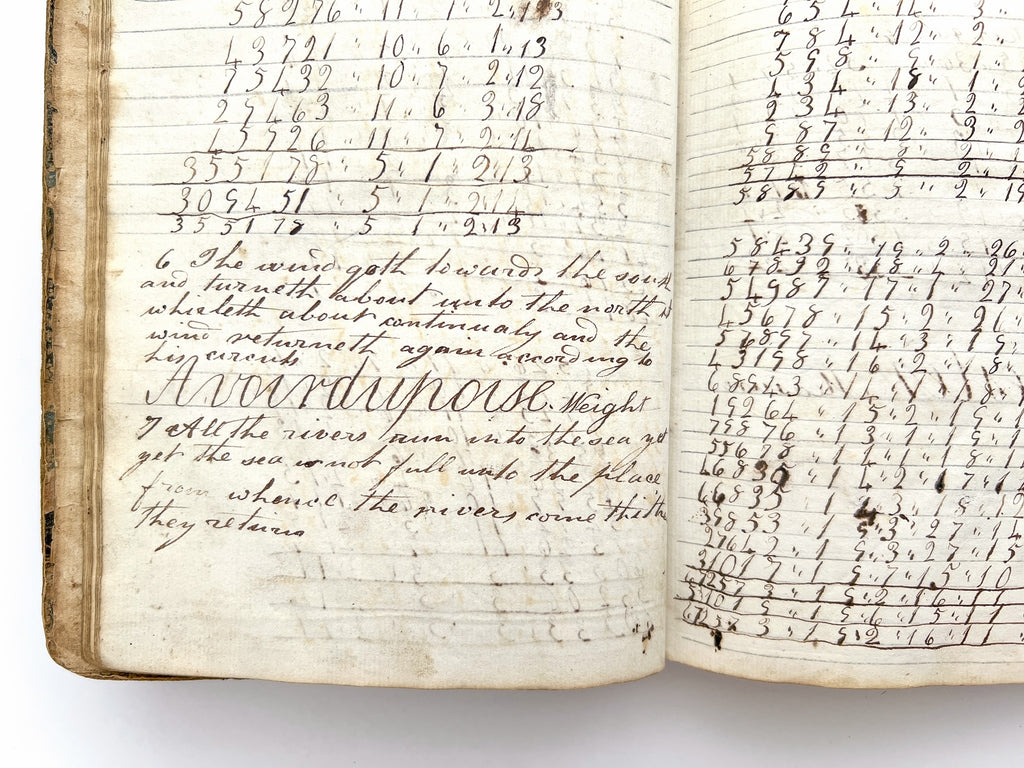 58276 " 11 " 1 " 2 " 13
43721 " 10 " 6 " 1 " 13
75432 " 10 " 7 " 2 " 12
27463 " 11 " 6 " 3 " 18
45726 " 11 " 7 " 2 " 14
355178 " 5 " 1 " 2 " 13
309451 " 5 " 1 " 2 " 14
355178 " 5 " 1 " 2 " 13
6 The wind goth towards the south
and turneth about unto the north it
whirleth about continualy and the
wind returneth again according to
his circuits
Avoirdupoise Weight
7 All the rivers run into the sea yet
yet the sea is not full unto the place
from whence the rivers come thither
they return
654 " 14 " 3 "
784 " 12 " 2 "
598 " 9 " 1 "
434 " 18 " 1 "
234 " 13 " 2 "
987 " 12 " 3 " 2
5889 " 8 " 2 "
5742 " 9 " 2 "
5889 " 5 " 2 " 19
58439 " 19 " 2 " 26
67892 " 18 " 1 " 21
54987 " 17 " 1 " 27
45678 " 15 " 2 " 21
56897 " 14 " 3 " 19
43198 " 16 " 2 " 8
68943
19264 " 15 " 2 " 19
79876 " 13 " 1 " 19
55678 " 14 " 1 " 18
46835 " 14 " 2 " 17
46835 " 14 " 3 " 18 " 12
37853 " 1 " 9 " 3 " 27 " 14
27642 " 1 " 9 " 3 " 27 " 15
31017 " 1 " 9 " 7 " 15 " 10